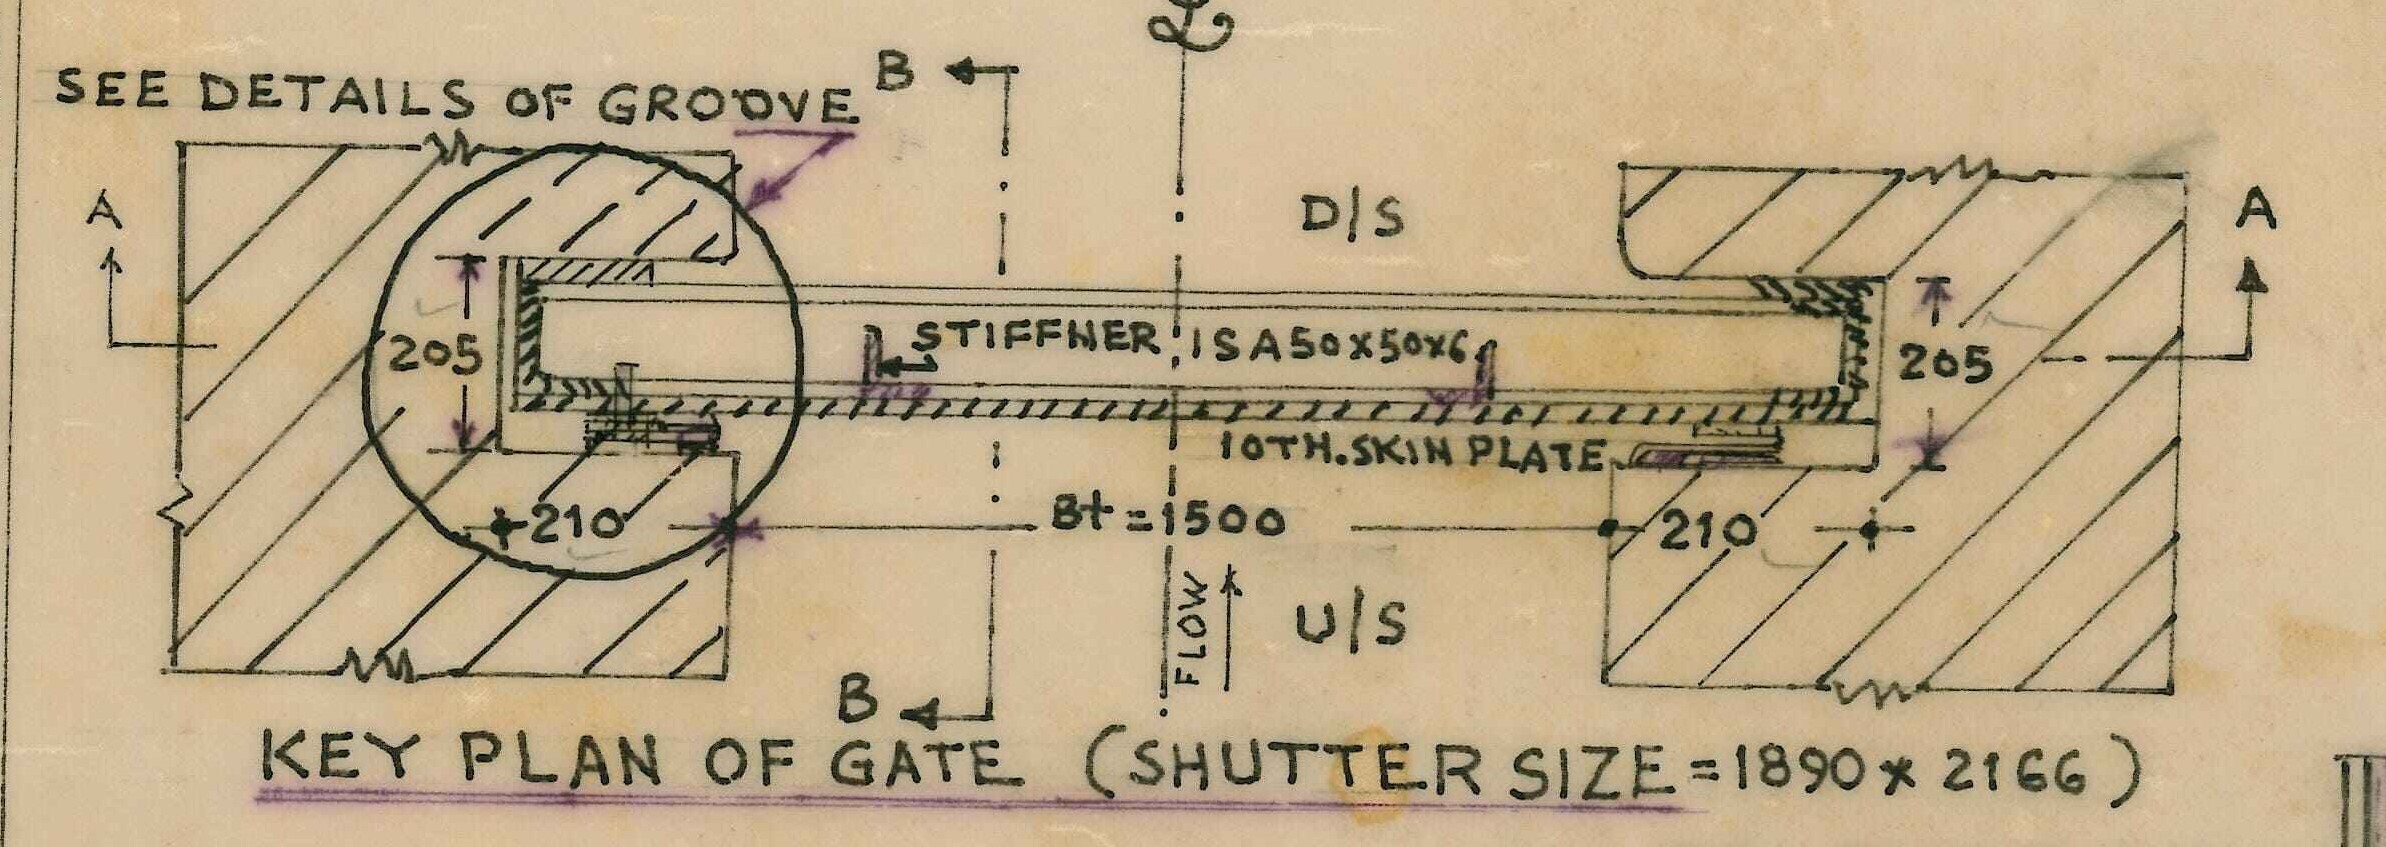 SEE DETAILS OF GROOVE
B
D/S
A
A
205
STIFFNER ISA50x50x6
205
10TH.SKIN PLATE
210
Bt=1500
210
FLOW
U/S
B
KEY PLAN OF GATE (SHUTTER SIZE=1890x2166)